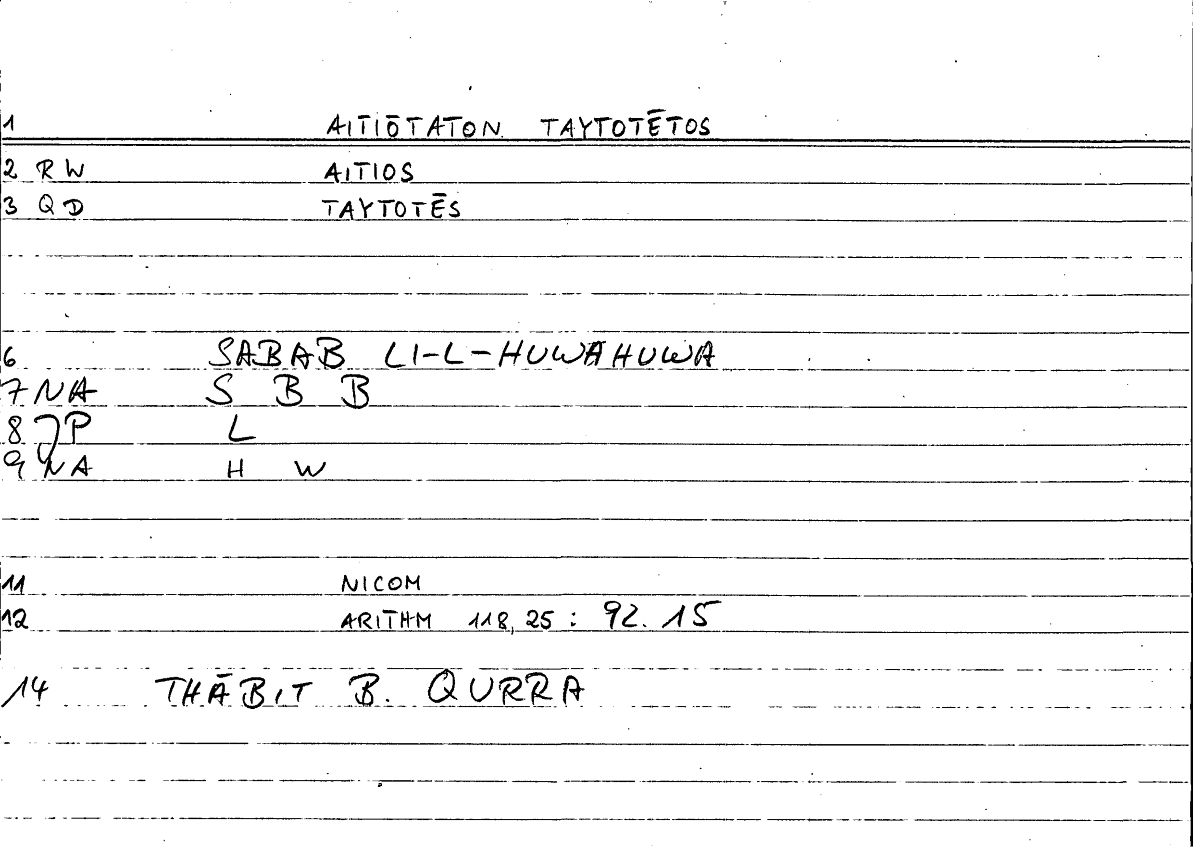 1 AITIŌTATON TAYTOTĒTOS
2 RW AITIOS
3 QD TAYTOTĒS
6 SABAB LI-L-HUWAHUWA
7 NA S B B
8 JP L
9 NA H W
11 NICOM
12 ARITHM 118,25 : 92.15
14 THĀBIT B. QURRA